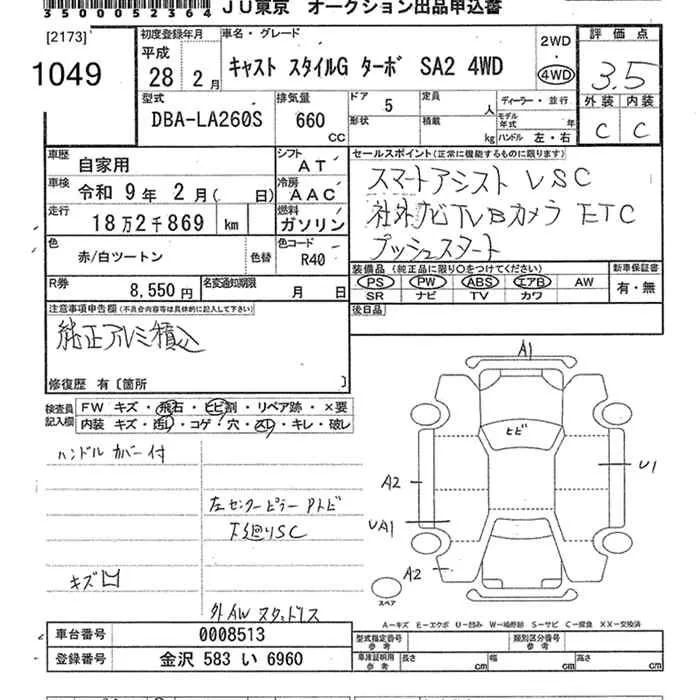 35000523​64 JU東京 オークション出品申込書
[2173]
1049
初度登録年月 平成 28 2月
車名・グレード キャスト スタイルG ターボ SA2 4WD
2WD ・ 4WD
評価点 3.5
外装 内装
C C
型式 DBA-LA260S
排気量 660 CC
ドア 5
形状
定員 人
積載 kg
ディーラー・並行
モデル年式 年
ハンドル 左・右
車歴 自家用
シフト AT
車検 令和 9年 2月( 日)
冷房 AAC
走行 18万2千869 km
燃料 ガソリン
色 赤/白ツートン 色替
色コード R40
R券 8,550円
名変通知期限 月 日
セールスポイント(正常に機能するものに限ります)
スマートアシスト VSC
社外ナビTVBカメラ ETC
プッシュスタート
装備品(純正品に限り○をつけてください)
PS PW ABS エアB AW
SR ナビ TV カワ
新車保証書
有・無
後日品
注意事項申告欄(不具合内容等は具体的に記入して下さい)
純正アルミ積込
修復歴 有〔箇所 〕
検査員記入欄
FW キズ・飛石・ヒビ割・リペア跡・×要
内装 キズ・汚レ・コゲ・穴・スレ・キレ・破レ
ハンドルカバー付
左センターピラーアトビ
下廻りSC
キズ
外AW スタッドレス
A1
ヒビ
A2
U1
UA1
A2
スペア
A−キズ E−エクボ U−凹み W−補修跡 S−サビ C−腐食 XX−交換済
車台番号 0008513
登録番号 金沢 583 い 6960
型式指定番号 参考
類別区分番号 参考
車庫証明用 参考 長さ cm 幅 cm 高さ cm